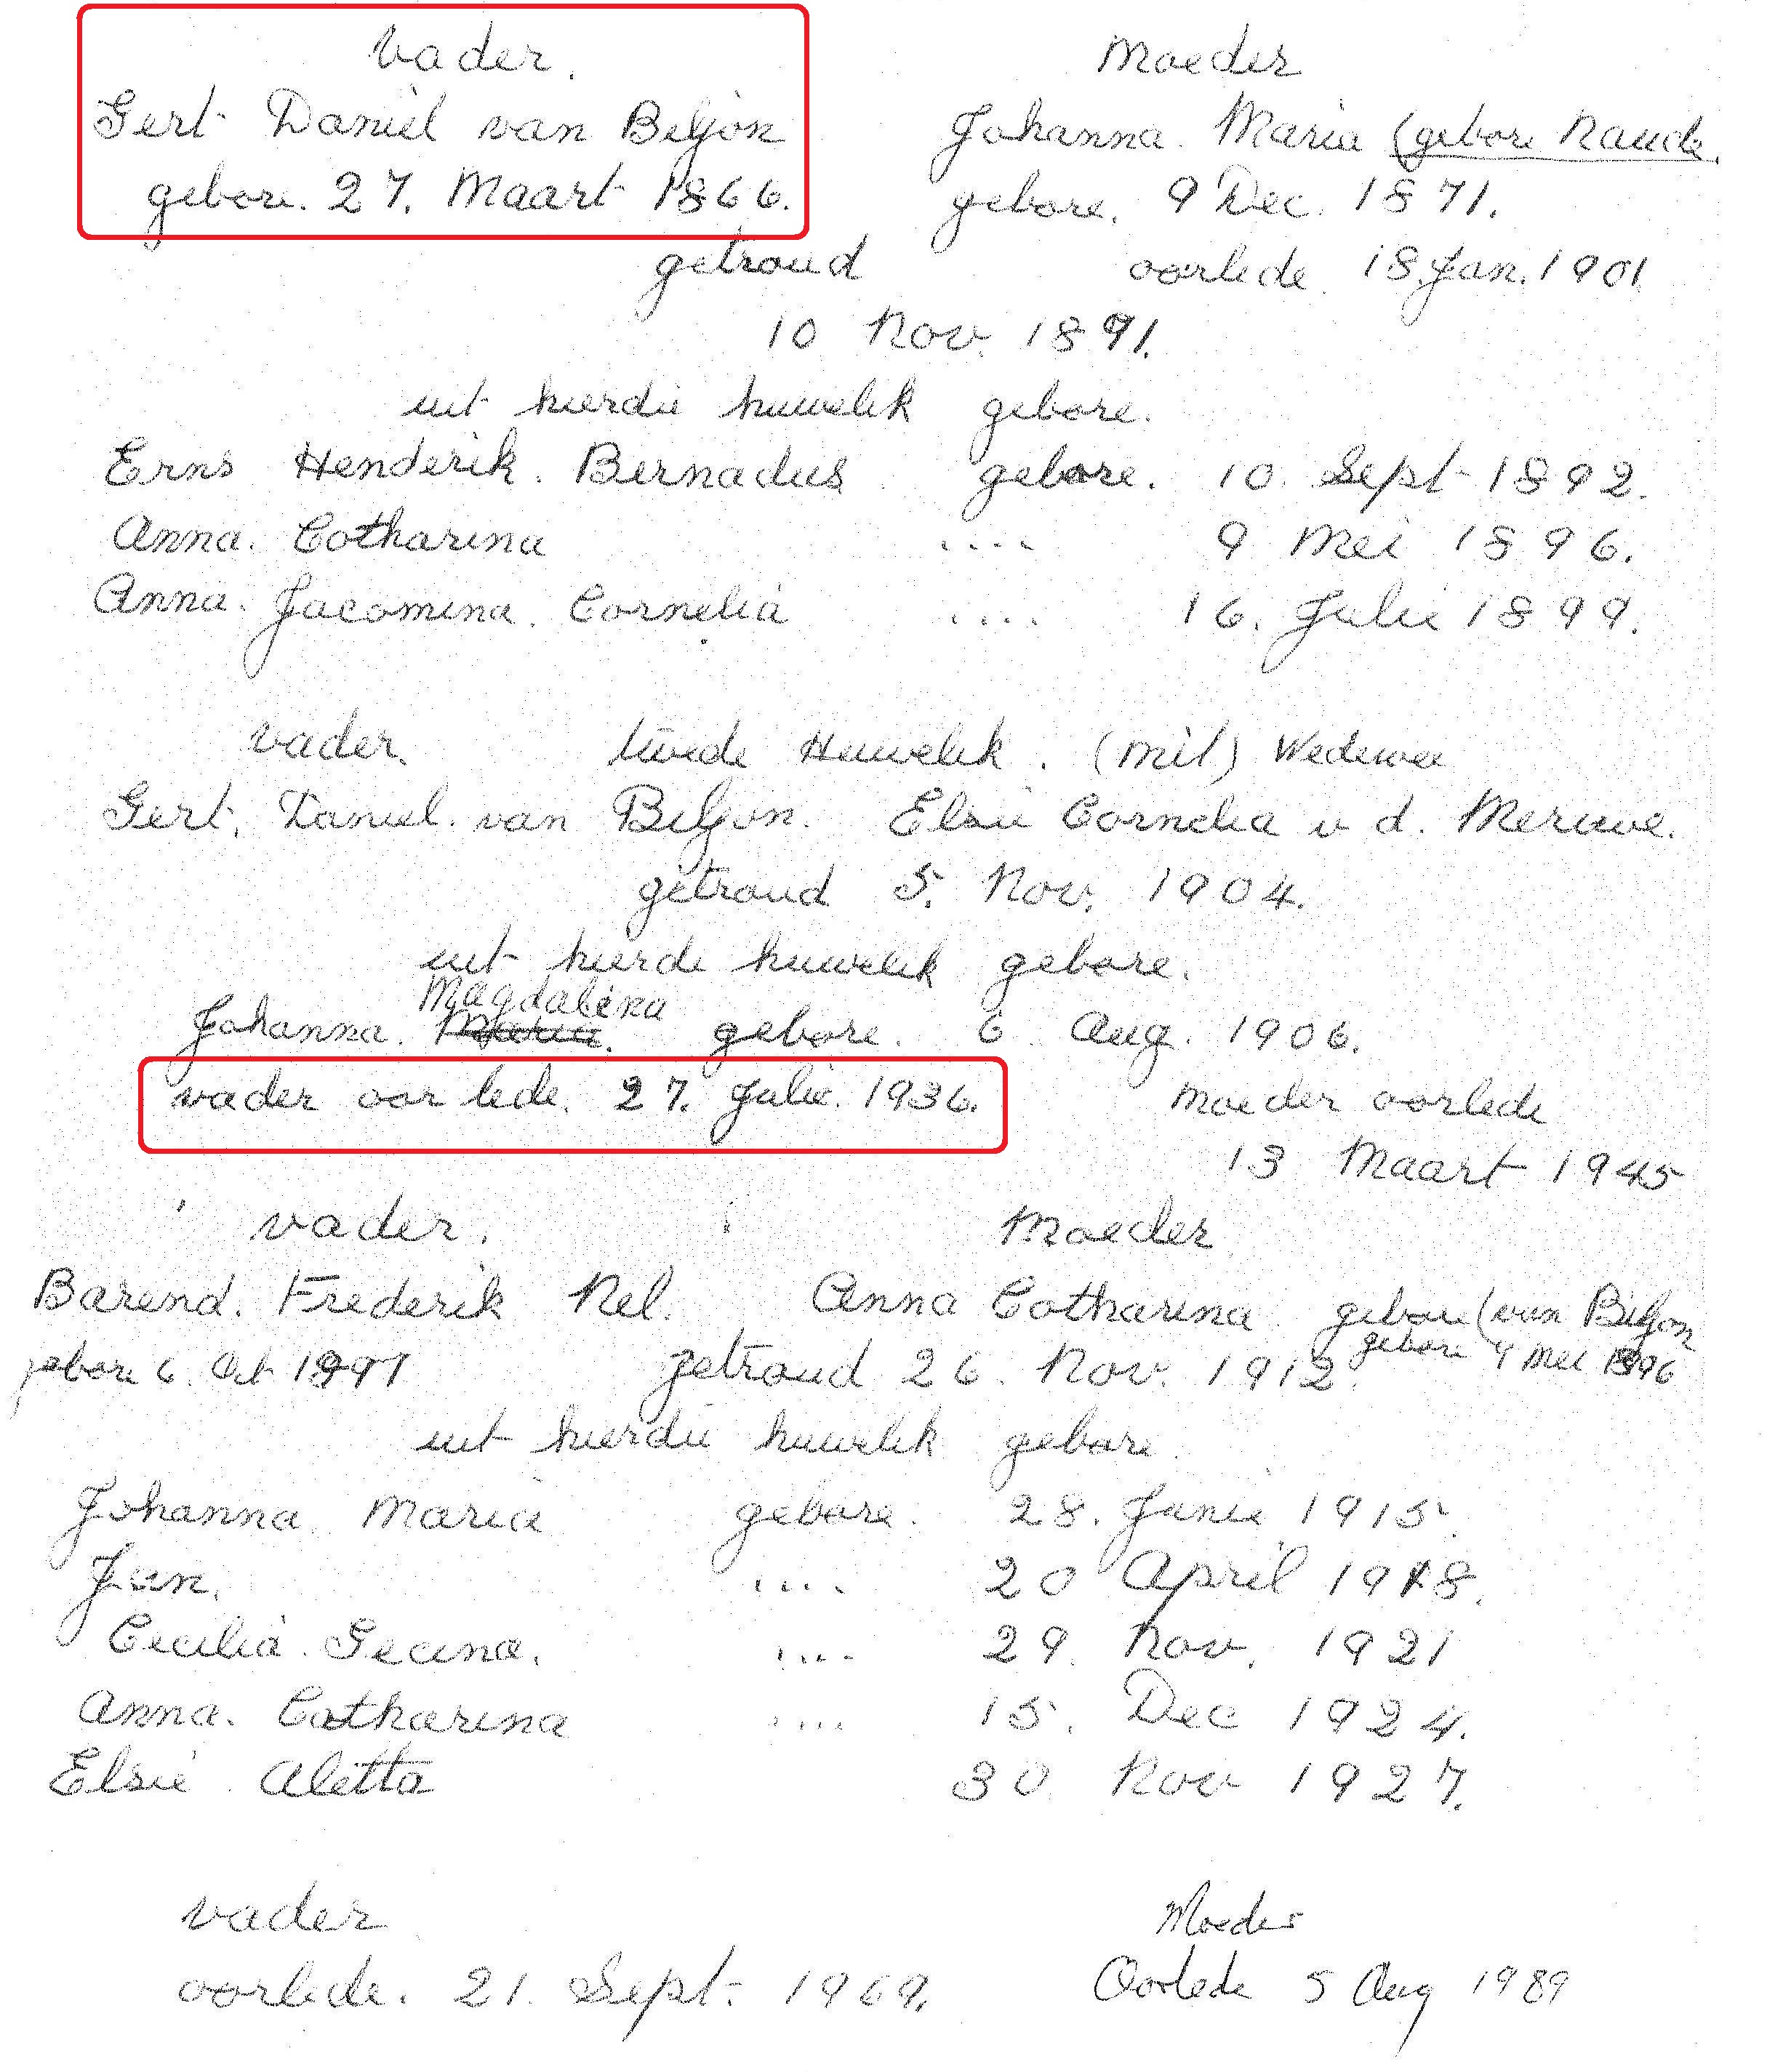 Vader. Moeder
Gert Daniel van Biljon Johanna. Maria (gebore Naude.
gebore. 27. Maart 1866. gebore. 9 Dec. 1871.
getroud oorlede. 18 Jan. 1901
10 Nov. 1891.
uit hierdie huwelik gebore.
Erns Henderik. Bernadus gebore. 10. Sept 1892.
Anna. Catharina .... 9 Mei 1896.
Anna. Jacomina. Cornelia .... 16. Julie 1899.
vader. twede Huwelik. (mit) Wedewee
Gert. Daniel. van Biljon. Elsie Cornelia v d. Meruwe.
getroud 5. Nov. 1904.
uit hierde huwelik gebore.
Magdalena
Johanna. Maria. gebore. 6 Aug. 1906.
vader oor lede. 27. Julie. 1936. moeder oorlede
13 Maart 1945
vader. Moeder
Barend. Frederik Nel. Anna Catharina gebore (van Biljon
gebore 6. Oct 1891 getroud 26. Nov. 1912. gebore 9 Mei 1896
uit hierdie huwelik gebore
Johanna Maria gebore. 28. Junie 1915.
Jan. .... 20 April 1918.
Cecilia. Gecina. .... 29. Nov. 1921
Anna. Catharina .... 15. Dec 1924.
Elsie. Aletta 30 Nov 1927.
vader Moeder
oorlede. 21. Sept. 1969. Oorlede 5 Aug 1989